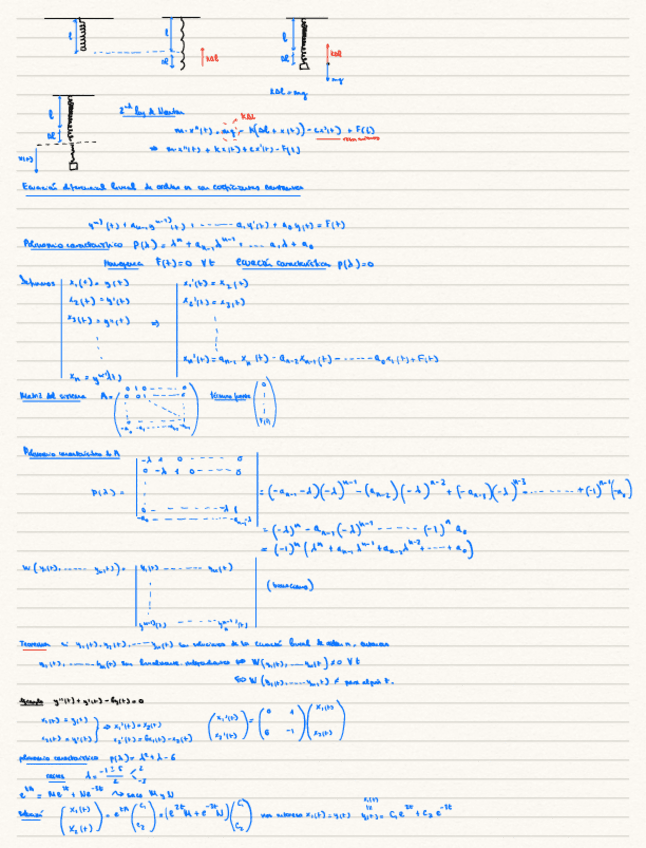 l
l
Δl
kΔl
l
Δl
kΔl
mg
kΔl = mg
l
Δl
x(t)
2ⁿᵈ ley de Newton
kΔl
m·x''(t) = mg - k(Δl + x(t)) - cx'(t) + F(t)
⇒ m·x''(t) + kx(t) + cx'(t) = F(t)
Ecuación diferencial lineal de orden n con coeficientes constantes
yⁿ⁾(t) + aₙ₋₁yⁿ⁻¹⁾(t) + ------ a₁y'(t) + a₀y(t) = F(t)
Polinomio característico P(λ) = λⁿ + aₙ₋₁λⁿ⁻¹ + ---- a₁λ + a₀
Homogénea F(t)=0 ∀t Ecuación característica p(λ)=0
Definimos
x₁(t) = y(t)
x₂(t) = y'(t)
x₃(t) = y''(t) ⇒
xₙ = yⁿ⁻¹⁾(t)
x₁'(t) = x₂(t)
x₂'(t) = x₃(t)
xₙ'(t) = aₙ₋₁ xₙ(t) - aₙ₋₂xₙ₋₁(t) - ------ a₀x₁(t) + F(t)
Matriz del sistema A = ( 0 1 0 ---- 0
0 0 1 ---- 0
-a₀ -a₁ ---- -aₙ₋₁ )
( 0
F(t) )
Polinomio característico de A
P(λ) =
-λ 1 0 ------ 0
0 -λ 1 0 ----- 0
0 ------ -λ 1
-a₀ ------ -aₙ₋₁-λ
= (-aₙ₋₁-λ)(-λ)ⁿ⁻¹ - (aₙ₋₂)(-λ)ⁿ⁻² + (-aₙ₋₃)(-λ)ⁿ⁻³ - ------ + (-1)ⁿ⁻¹(-a₀)
= (-λ)ⁿ - aₙ₋₁(-λ)ⁿ⁻¹ ------ (-1)ⁿ a₀
= (-1)ⁿ (λⁿ + aₙ₋₁λⁿ⁻¹ + aₙ₋₂λⁿ⁻² + ---- + a₀)
W(y₁(t), ------ yₙ(t)) =
y₁(t) ------ yₙ(t)
yⁿ⁻¹⁾(t) ------ yₙⁿ⁻¹⁾(t)
(wronskiano)
Teorema si y₁(t), y₂(t), ---- yₙ(t) son soluciones de la ecuación lineal de orden n, entonces
y₁(t), ------ yₙ(t) son linealmente independientes ⇔ W(y₁(t), ---- yₙ(t)) ≠ 0 ∀t
⇔ W(y₁(t), ---- yₙ(t)) ≠ para algún t.
Ejemplo y''(t) + y'(t) - 6y(t) = 0
x₁(t) = y(t)
x₂(t) = y'(t)
⇒ x₁'(t) = x₂(t)
x₂'(t) = 6x₁(t) - x₂(t)
( x₁'(t)
x₂'(t) ) = ( 0 1
6 -1 ) ( x₁(t)
x₂(t) )
polinomio característico p(λ) = λ² + λ - 6
raíces λ = (-1 ± 5)/2 < 2
-3
e^{tA} = Me^{2t} + Ne^{-3t} ⇝ saco M y N
Solución ( x₁(t)
x₂(t) ) = e^{tA} ( c₁
c₂ ) = (e^{2t} M + e^{-3t} N) ( c₁
c₂ ) nos interesa x₁(t) = y(t)
x₁(t)
y(t) = C₁e^{2t} + C₂e^{-3t}